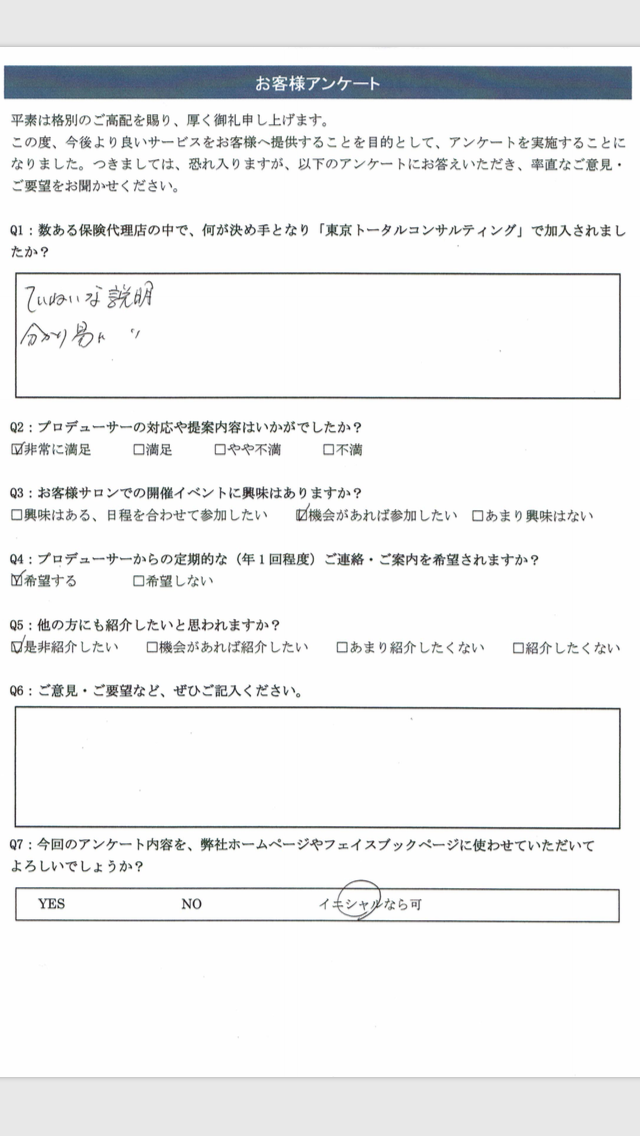 お客様アンケート
平素は格別のご高配を賜り、厚く御礼申し上げます。
この度、今後より良いサービスをお客様へ提供することを目的として、アンケートを実施することに
なりました。つきましては、恐れ入りますが、以下のアンケートにお答えいただき、率直なご意見・
ご要望をお聞かせください。
Q1：数ある保険代理店の中で、何が決め手となり「東京トータルコンサルティング」で加入されまし
たか？
ていねいな説明
分かり易い 〃
Q2：プロデューサーの対応や提案内容はいかがでしたか？
☑非常に満足 □満足 □やや不満 □不満
Q3：お客様サロンでの開催イベントに興味はありますか？
□興味はある、日程を合わせて参加したい ☑機会があれば参加したい □あまり興味はない
Q4：プロデューサーからの定期的な（年１回程度）ご連絡・ご案内を希望されますか？
☑希望する □希望しない
Q5：他の方にも紹介したいと思われますか？
☑是非紹介したい □機会があれば紹介したい □あまり紹介したくない □紹介したくない
Q6：ご意見・ご要望など、ぜひご記入ください。
Q7：今回のアンケート内容を、弊社ホームページやフェイスブックページに使わせていただいて
よろしいでしょうか？
YES NO イニシャルなら可